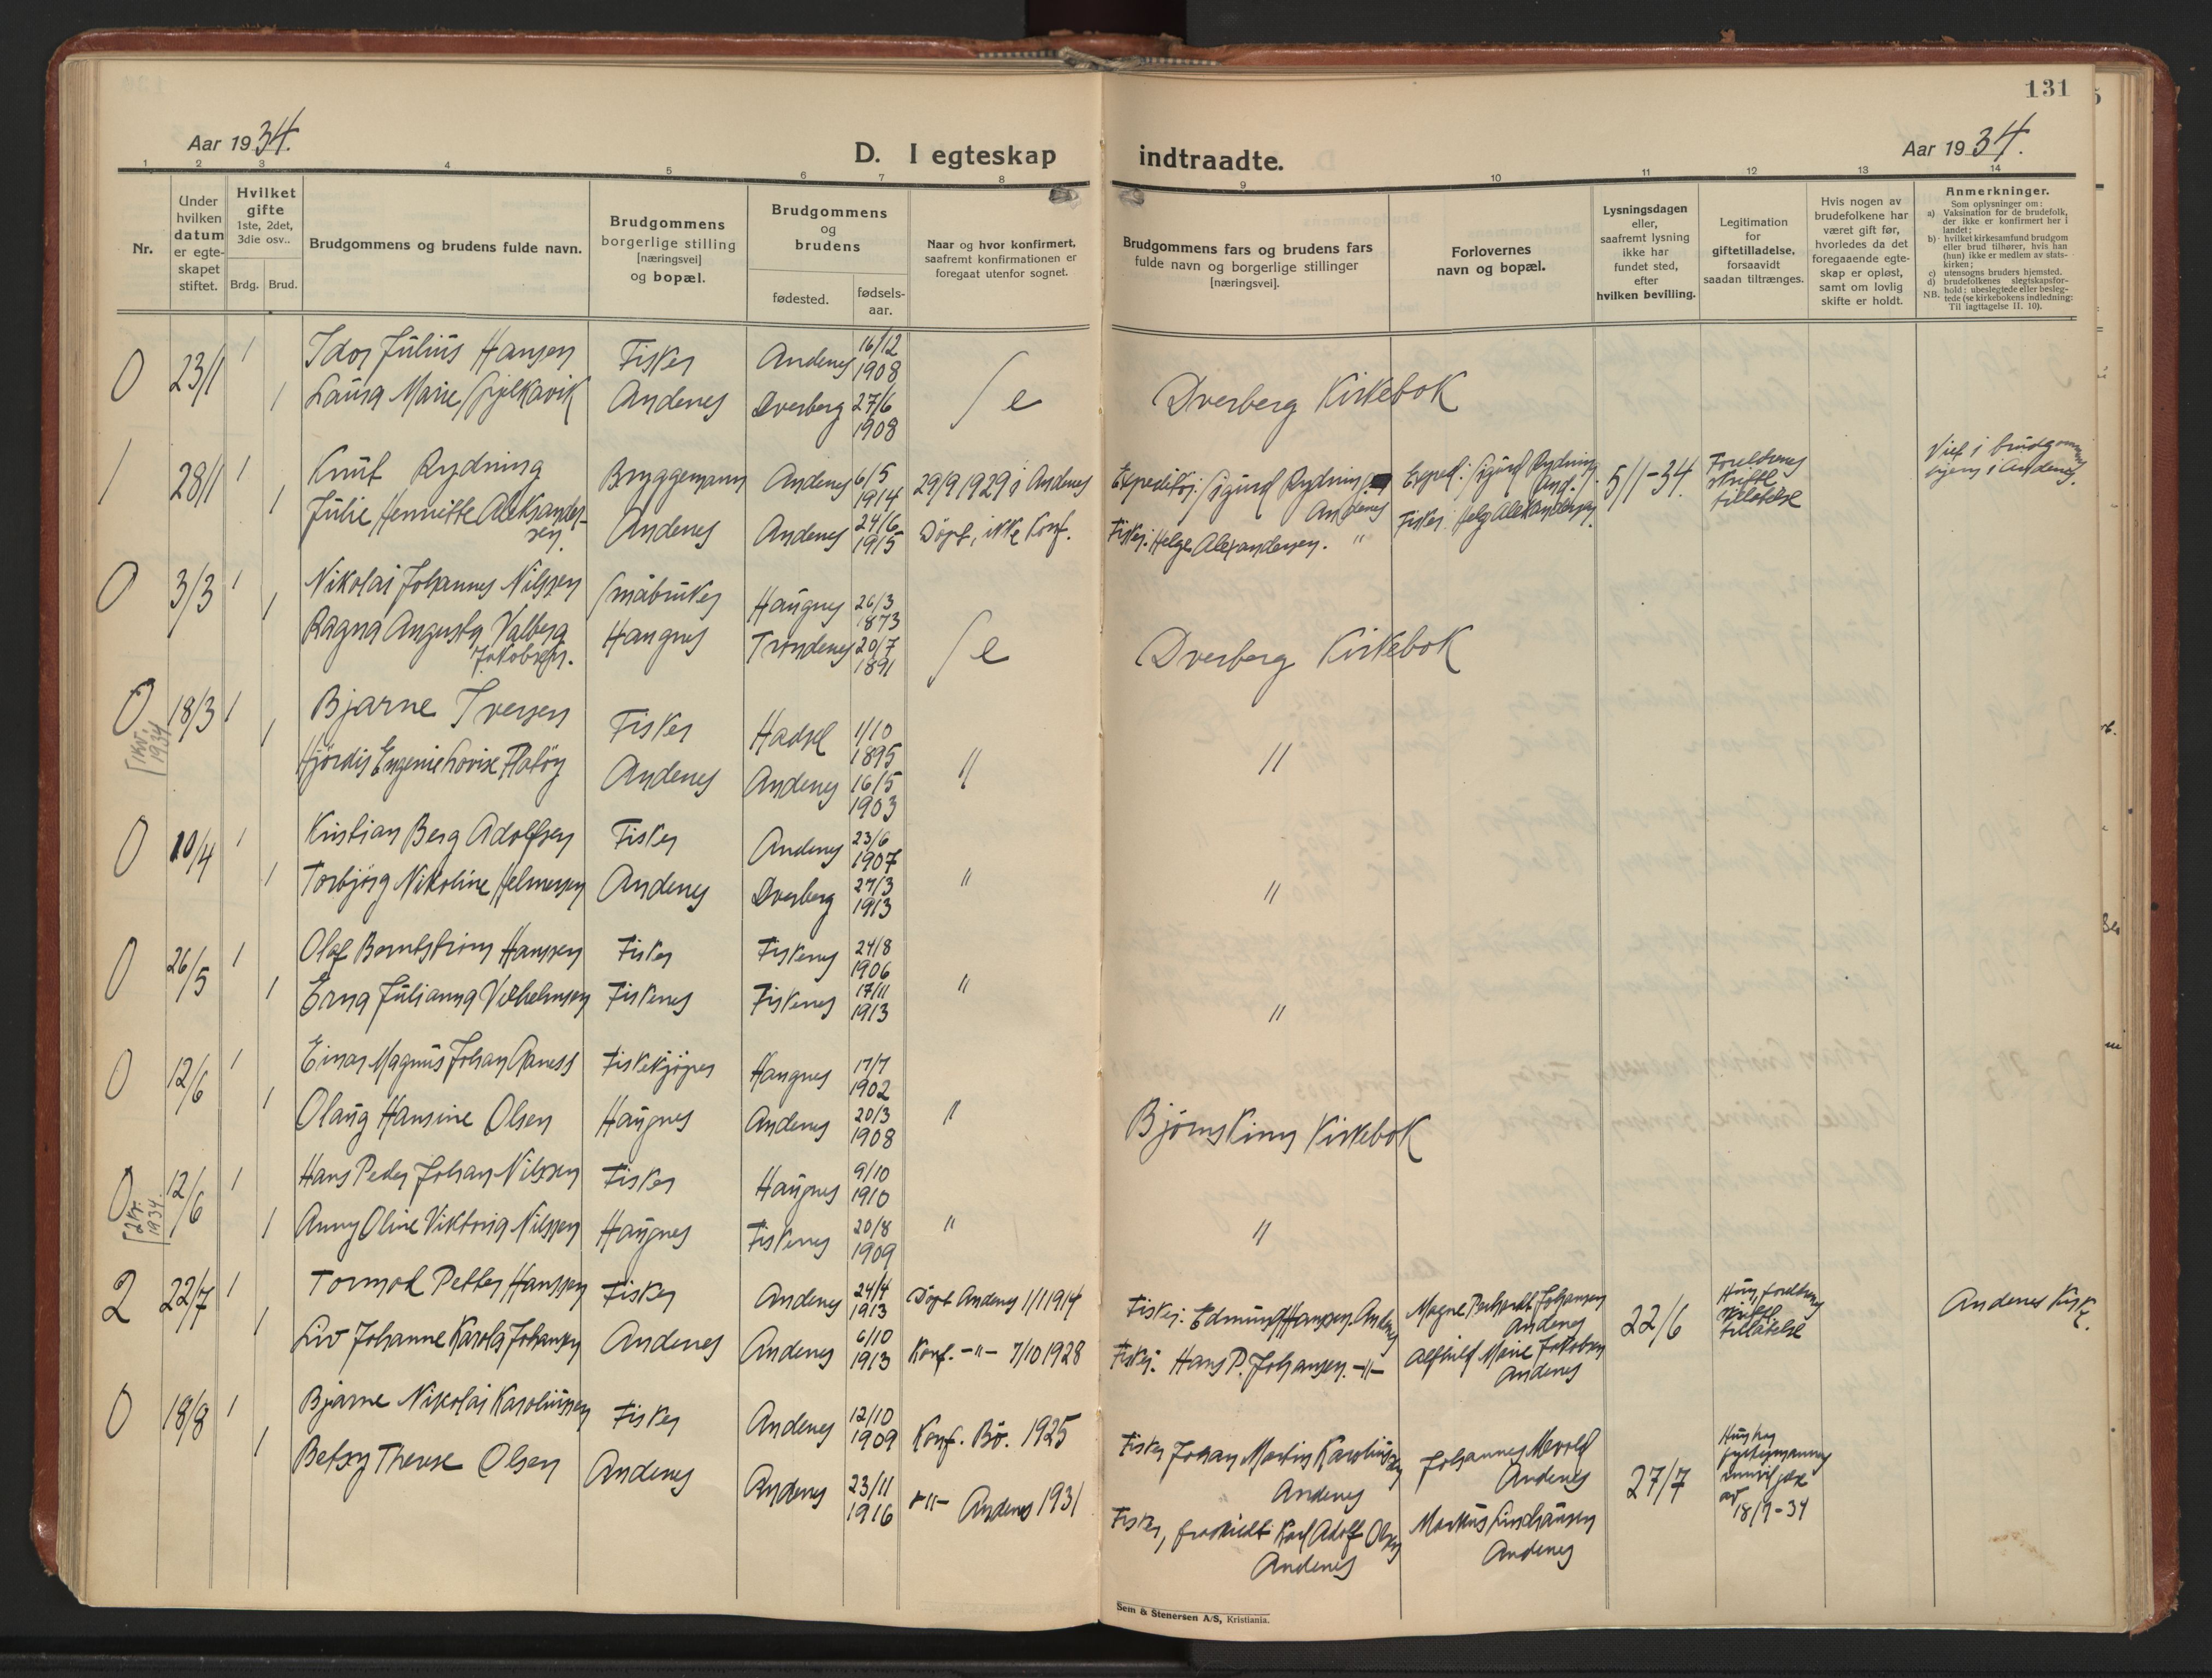 131
Aar 1934.
D. I egteskap indtraadte.
Aar 1934.
1 2 3 4 5 6 7 8 9 10 11 12 13 14
Nr.
Under hvilken datum er egte-skapet stiftet.
Hvilket gifte 1ste, 2det, 3die osv..
Brdg. Brud.
Brudgommens og brudens fulde navn.
Brudgommens borgerlige stilling [næringsvei] og bopæl.
Brudgommens og brudens
fødested.
fødsels-aar.
Naar og hvor konfirmert, saafremt konfirmationen er foregaat utenfor sognet.
Brudgommens fars og brudens fars fulde navn og borgerlige stillinger [næringsvei].
Forlovernes navn og bopæl.
Lysningsdagen eller, saafremt lysning ikke har fundet sted, efter hvilken bevilling.
Legitimation for giftetilladelse, forsaavidt saadan tiltrænges.
Hvis nogen av brudefolkene har været gift før, hvorledes da det foregaaende egte-skap er opløst, samt om lovlig skifte er holdt.
Anmerkninger.
Som oplysninger om:
a) Vaksination for de brudefolk, der ikke er konfirmert her i landet;
b) hvilket kirkesamfund brudgom eller brud tilhører, hvis han (hun) ikke er medlem av stats-kirken;
c) utensogns bruders hjemsted.
d) brudefolkenes slegtskapsfor-hold: ubeslegtede eller besleg-tede (se kirkebokens indledning:
NB. Til iagttagelse II. 10).
0 23/1 1 Idor Julius Hansen Fisker Andenes 16/12 1908
1 Laura Marie Andenes Dverberg 27/6 1908 Se Dverberg Kirkebok
1 28/1 1 Knut Rydning Bryggemann Andenes 6/5 1914 29/9 1929 i Andenes Expeditør: Sigurd Rydning Andenes Exped: Sigurd Rydning And. 5/1-34. Foreldrenes skriftl tillatelse Viet i brudgommens hjem i Andenes.
1 Julie Henriette Aleksander-sen. Andenes Andenes 24/6 1915 Døpt, ikke Konf. Fisker: Helge Alexandersen. " Fisker Helg Alexandersen.
0 3/3 1 Nikolai Johannes Nilssen Småbruker Haugnes 26/3 1873
1 Ragna Augusta Valberg Jakobsen. Haugnes Trondenes 20/7 1891 Se Dverberg Kirkebok
0 18/3 1 Bjarne Iversen Fisker Hadsel 1/10 1895
[1kv. 1934
1 Hjördis Eugenie Lovise Andenes Andenes 16/5 1903 " "
0 10/4 1 Kristian Berg Adolfsen Fisker Andenes 23/6 1907
1 Torbjørg Nikoline Helmersen Andenes Dverberg 27/3 1913 " "
0 26/5 1 Olaf Berntstrøm Hanssen Fisker Fiskenes 24/8 1906
1 Erna Julianna Vilhelmsen Fiskenes Fiskenes 17/11 1913 " "
0 12/6 1 Einar Magnus Johan Fiskekjøper Haugnes 17/7 1902
1 Olaug Hansine Olsen Haugnes Andenes 20/3 1908 " Bjørnskinn Kirkebok
0 12/6 1 Hans Peder Johan Nilssen Fisker Haugnes 9/10 1910
[2kv. 1934
1 Anny Oline Viktoria Nilssen Haugnes Fiskenes 20/8 1909 " "
2 22/7 1 Tormod Petter Hanssen Fisker Andenes 24/4 1913 Døpt Andenes 1/1 1914 Fisker: Edmund Hanssen. Andenes Magne Johansen Andenes 22/6 Huns foreldrenes skriftl. tillatelse Andenes Kirke.
1 Liv Johanne Karola Johansen Andenes Andenes 6/10 1913 Konf. -"- 7/10 1928 Fisker: Hans P. Johansen. -"- Alfhild Marie Jakobsen Andenes
0 18/8 1 Bjarne Nikolai Karoliussen Fisker Andenes 12/10 1909 Konf. Bø. 1925 Fisker Johan Martin Karoliussen Andenes Johannes Andenes 27/7 Hun har fylkesmannens av 18/7-34
1 Betsy Therese Olsen Andenes Andenes 23/11 1916 -"- Andenes 1931 Fisker, fraskilt Karl Adolf Olsen Andenes Markus Lindhausen Andenes
Sem & Stenersen A/S, Kristiania.